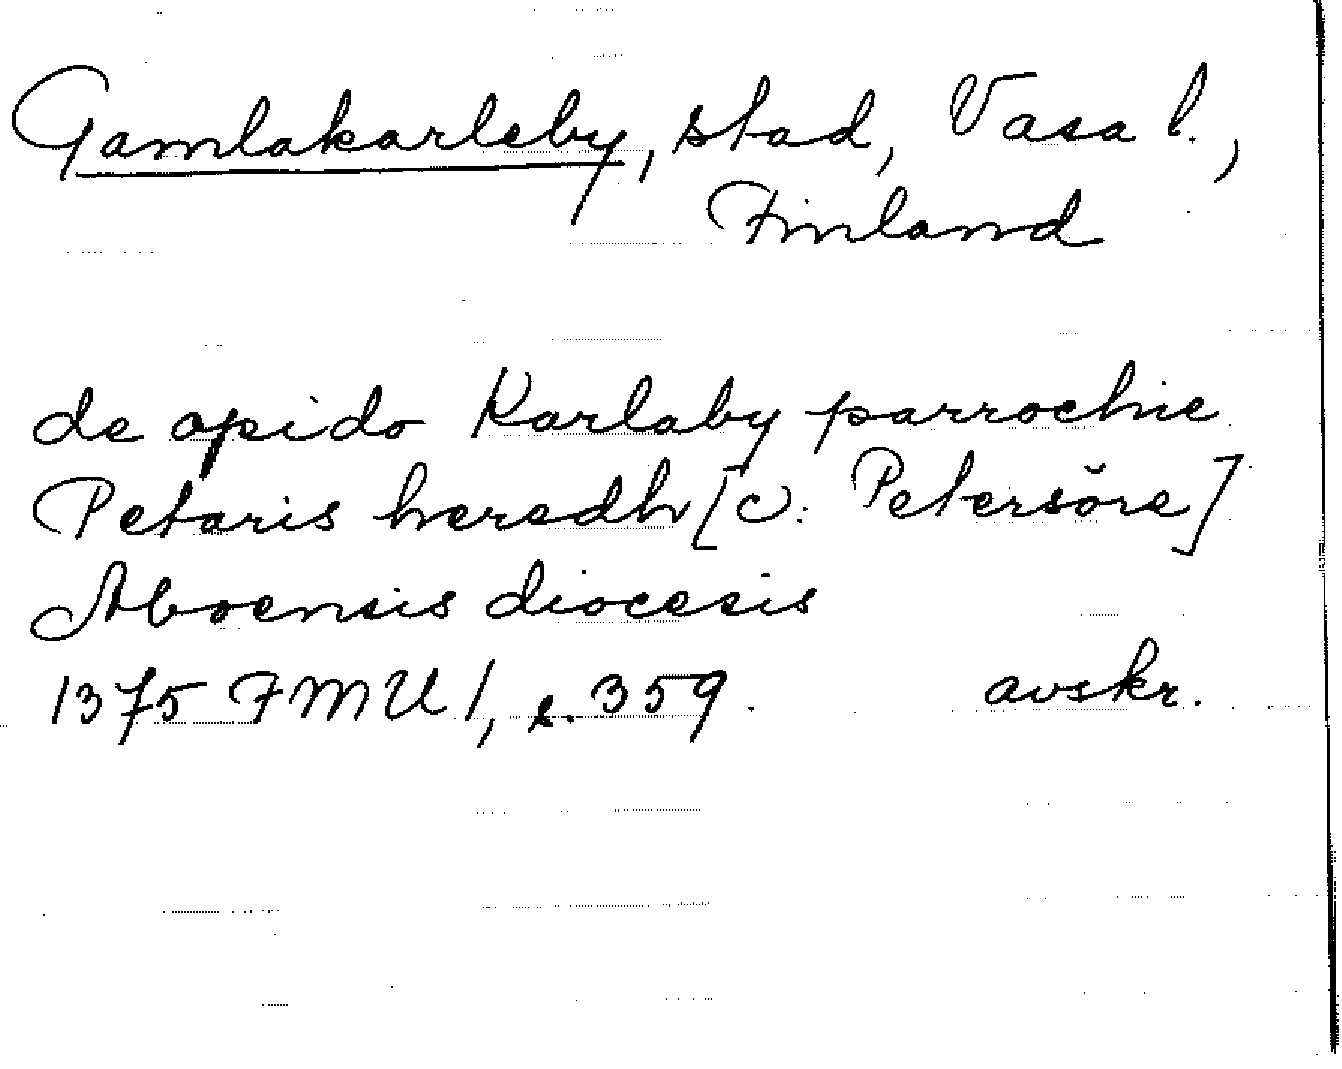 Gamlakarleby, stad, Vasa l.,
Finland
de opido Karlaby parrochie
Petaris heredh [ɔ: Petersöre]
Aboensis diocesis
1375 FMU 1, s. 359. avskr.